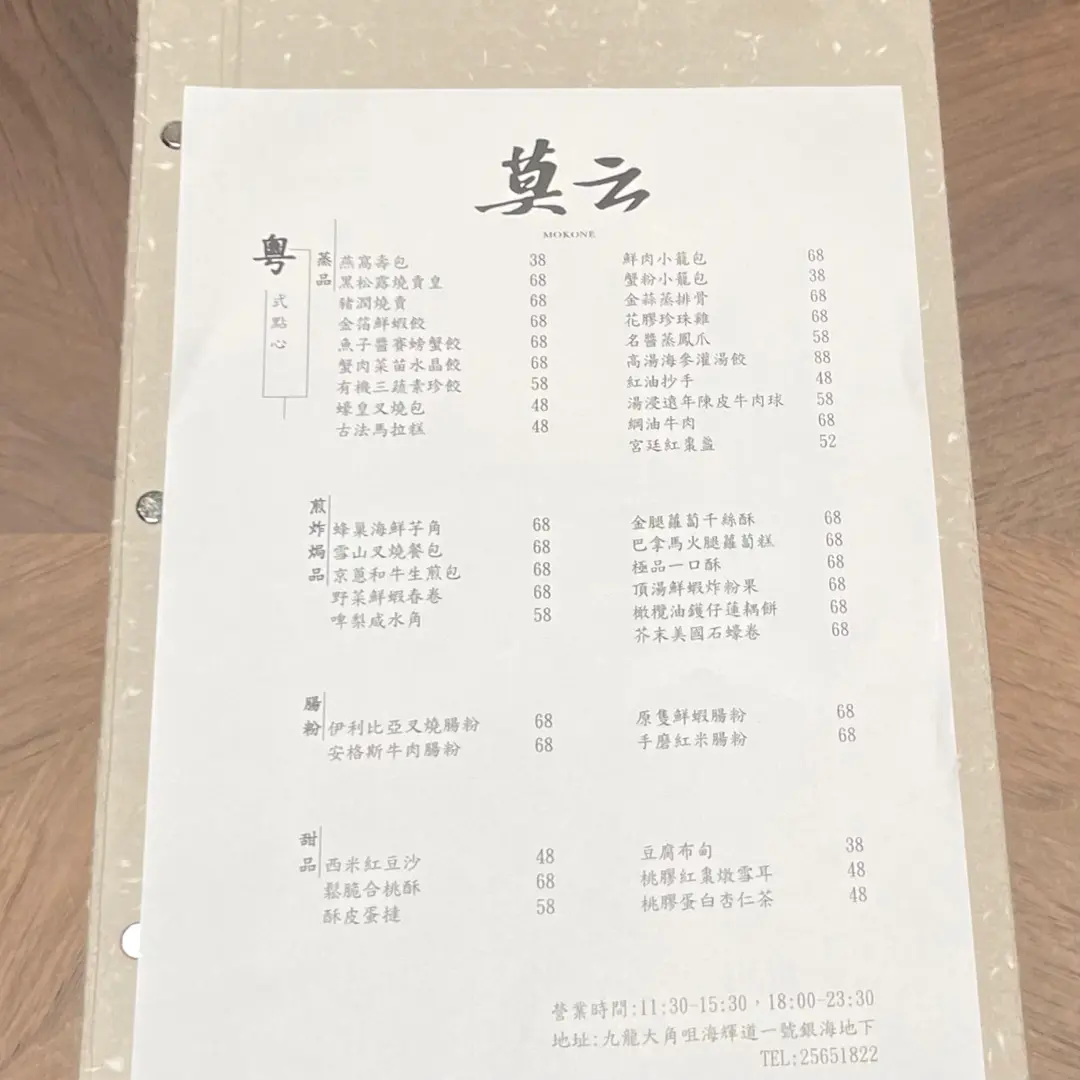 莫云
MOKONE
粵式點心
蒸品
燕窩壽包 38
黑松露燒賣皇 68
豬潤燒賣 68
金箔鮮蝦餃 68
魚子醬賽螃蟹餃 68
蟹肉菜苗水晶餃 68
有機三蔬素珍餃 58
蠔皇叉燒包 48
古法馬拉糕 48
鮮肉小籠包 68
蟹粉小籠包 38
金蒜蒸排骨 68
花膠珍珠雞 68
名醬蒸鳳爪 58
高湯海參灌湯餃 88
紅油抄手 48
湯浸遠年陳皮牛肉球 58
網油牛肉 68
宮廷紅棗盞 52
煎炸焗品
蜂巢海鮮芋角 68
雪山叉燒餐包 68
京蔥和牛生煎包 68
野菜鮮蝦春卷 68
啤梨咸水角 58
金腿蘿蔔千絲酥 68
巴拿馬火腿蘿蔔糕 68
極品一口酥 68
頂湯鮮蝦炸粉果 68
橄欖油鑊仔蓮耦餅 68
芥末美國石蠔卷 68
腸粉
伊利比亞叉燒腸粉 68
安格斯牛肉腸粉 68
原隻鮮蝦腸粉 68
手磨紅米腸粉 68
甜品
西米紅豆沙 48
鬆脆合桃酥 68
酥皮蛋撻 58
豆腐布甸 38
桃膠紅棗燉雪耳 48
桃膠蛋白杏仁茶 48
營業時間:11:30-15:30，18:00-23:30
地址:九龍大角咀海輝道一號銀海地下
TEL:25651822